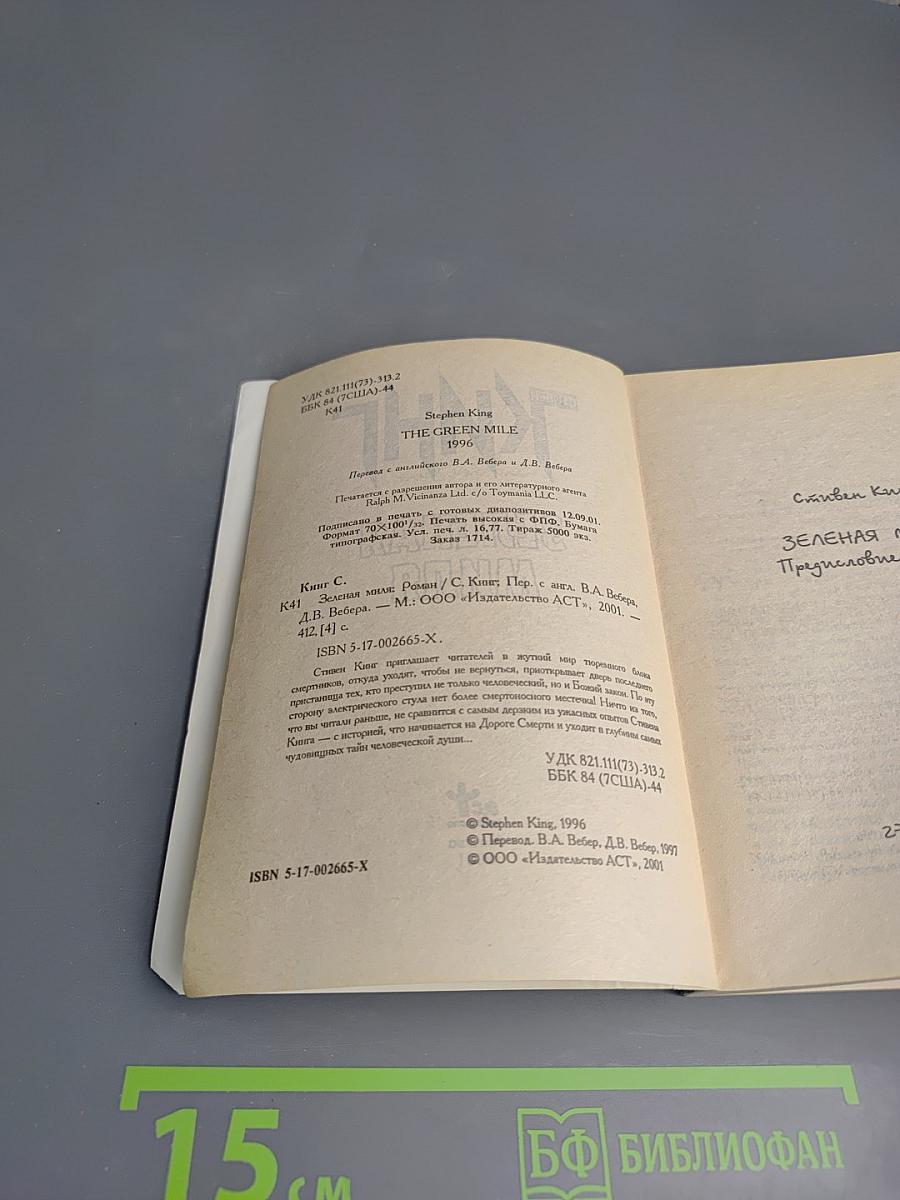 УДК 821.111(73)-313.2
ББК 84 (7США)-44
К41
Stephen King
THE GREEN MILE
1996
Перевод с английского В.А. Вебера и Д.В. Вебера
Печатается с разрешения автора и его литературного агента
Ralph M.Vicinanza Ltd. c/o Toymania LLC.
Подписано в печать с готовых диапозитивов 12.09.01.
Формат 70×100¹/₃₂. Печать высокая с ФПФ. Бумага
типографская. Усл. печ. л. 16,77. Тираж 5000 экз.
Заказ 1714.
Кинг С.
К41 Зеленая миля: Роман / С. Кинг; Пер. с англ. В.А. Вебера,
Д.В. Вебера. — М.: ООО «Издательство АСТ», 2001. —
412, [4] с.
ISBN 5-17-002665-X.
Стивен Кинг приглашает читателей в жуткий мир тюремного блока
смертников, откуда уходят, чтобы не вернуться, приоткрывает дверь последнего
пристанища тех, кто преступил не только человеческий, но и Божий закон. По эту
сторону электрического стула нет более смертоносного местечка! Ничто из того,
что вы читали раньше, не сравнится с самым дерзким из ужасных опытов Стивена
Кинга — с историей, что начинается на Дороге Смерти и уходит в глубины самых
чудовищных тайн человеческой души...
УДК 821.111(73)-313.2
ББК 84 (7США)-44
© Stephen King, 1996
© Перевод. В.А. Вебер, Д.В. Вебер, 1997
© ООО «Издательство АСТ», 2001
ISBN 5-17-002665-X
Стивен
ЗЕЛЕНАЯ
Предисловие
15 см
БФ БИБЛИОФАН